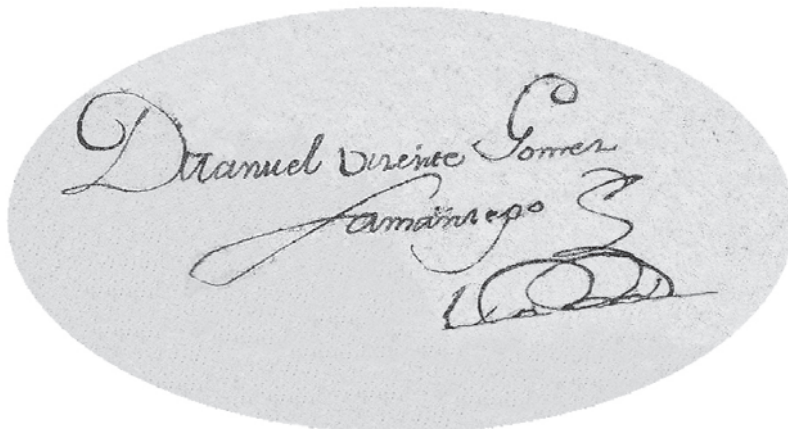 D Manuel Vizente Gomez
Samaniego